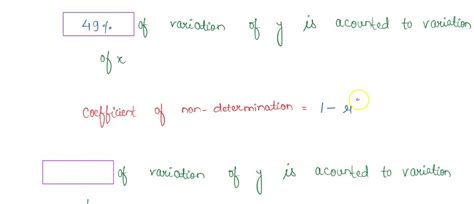 49% of variation of y is acounted to variation
of x
Coefficient of non-determination = 1 - r²
of variation of y is acounted to variation